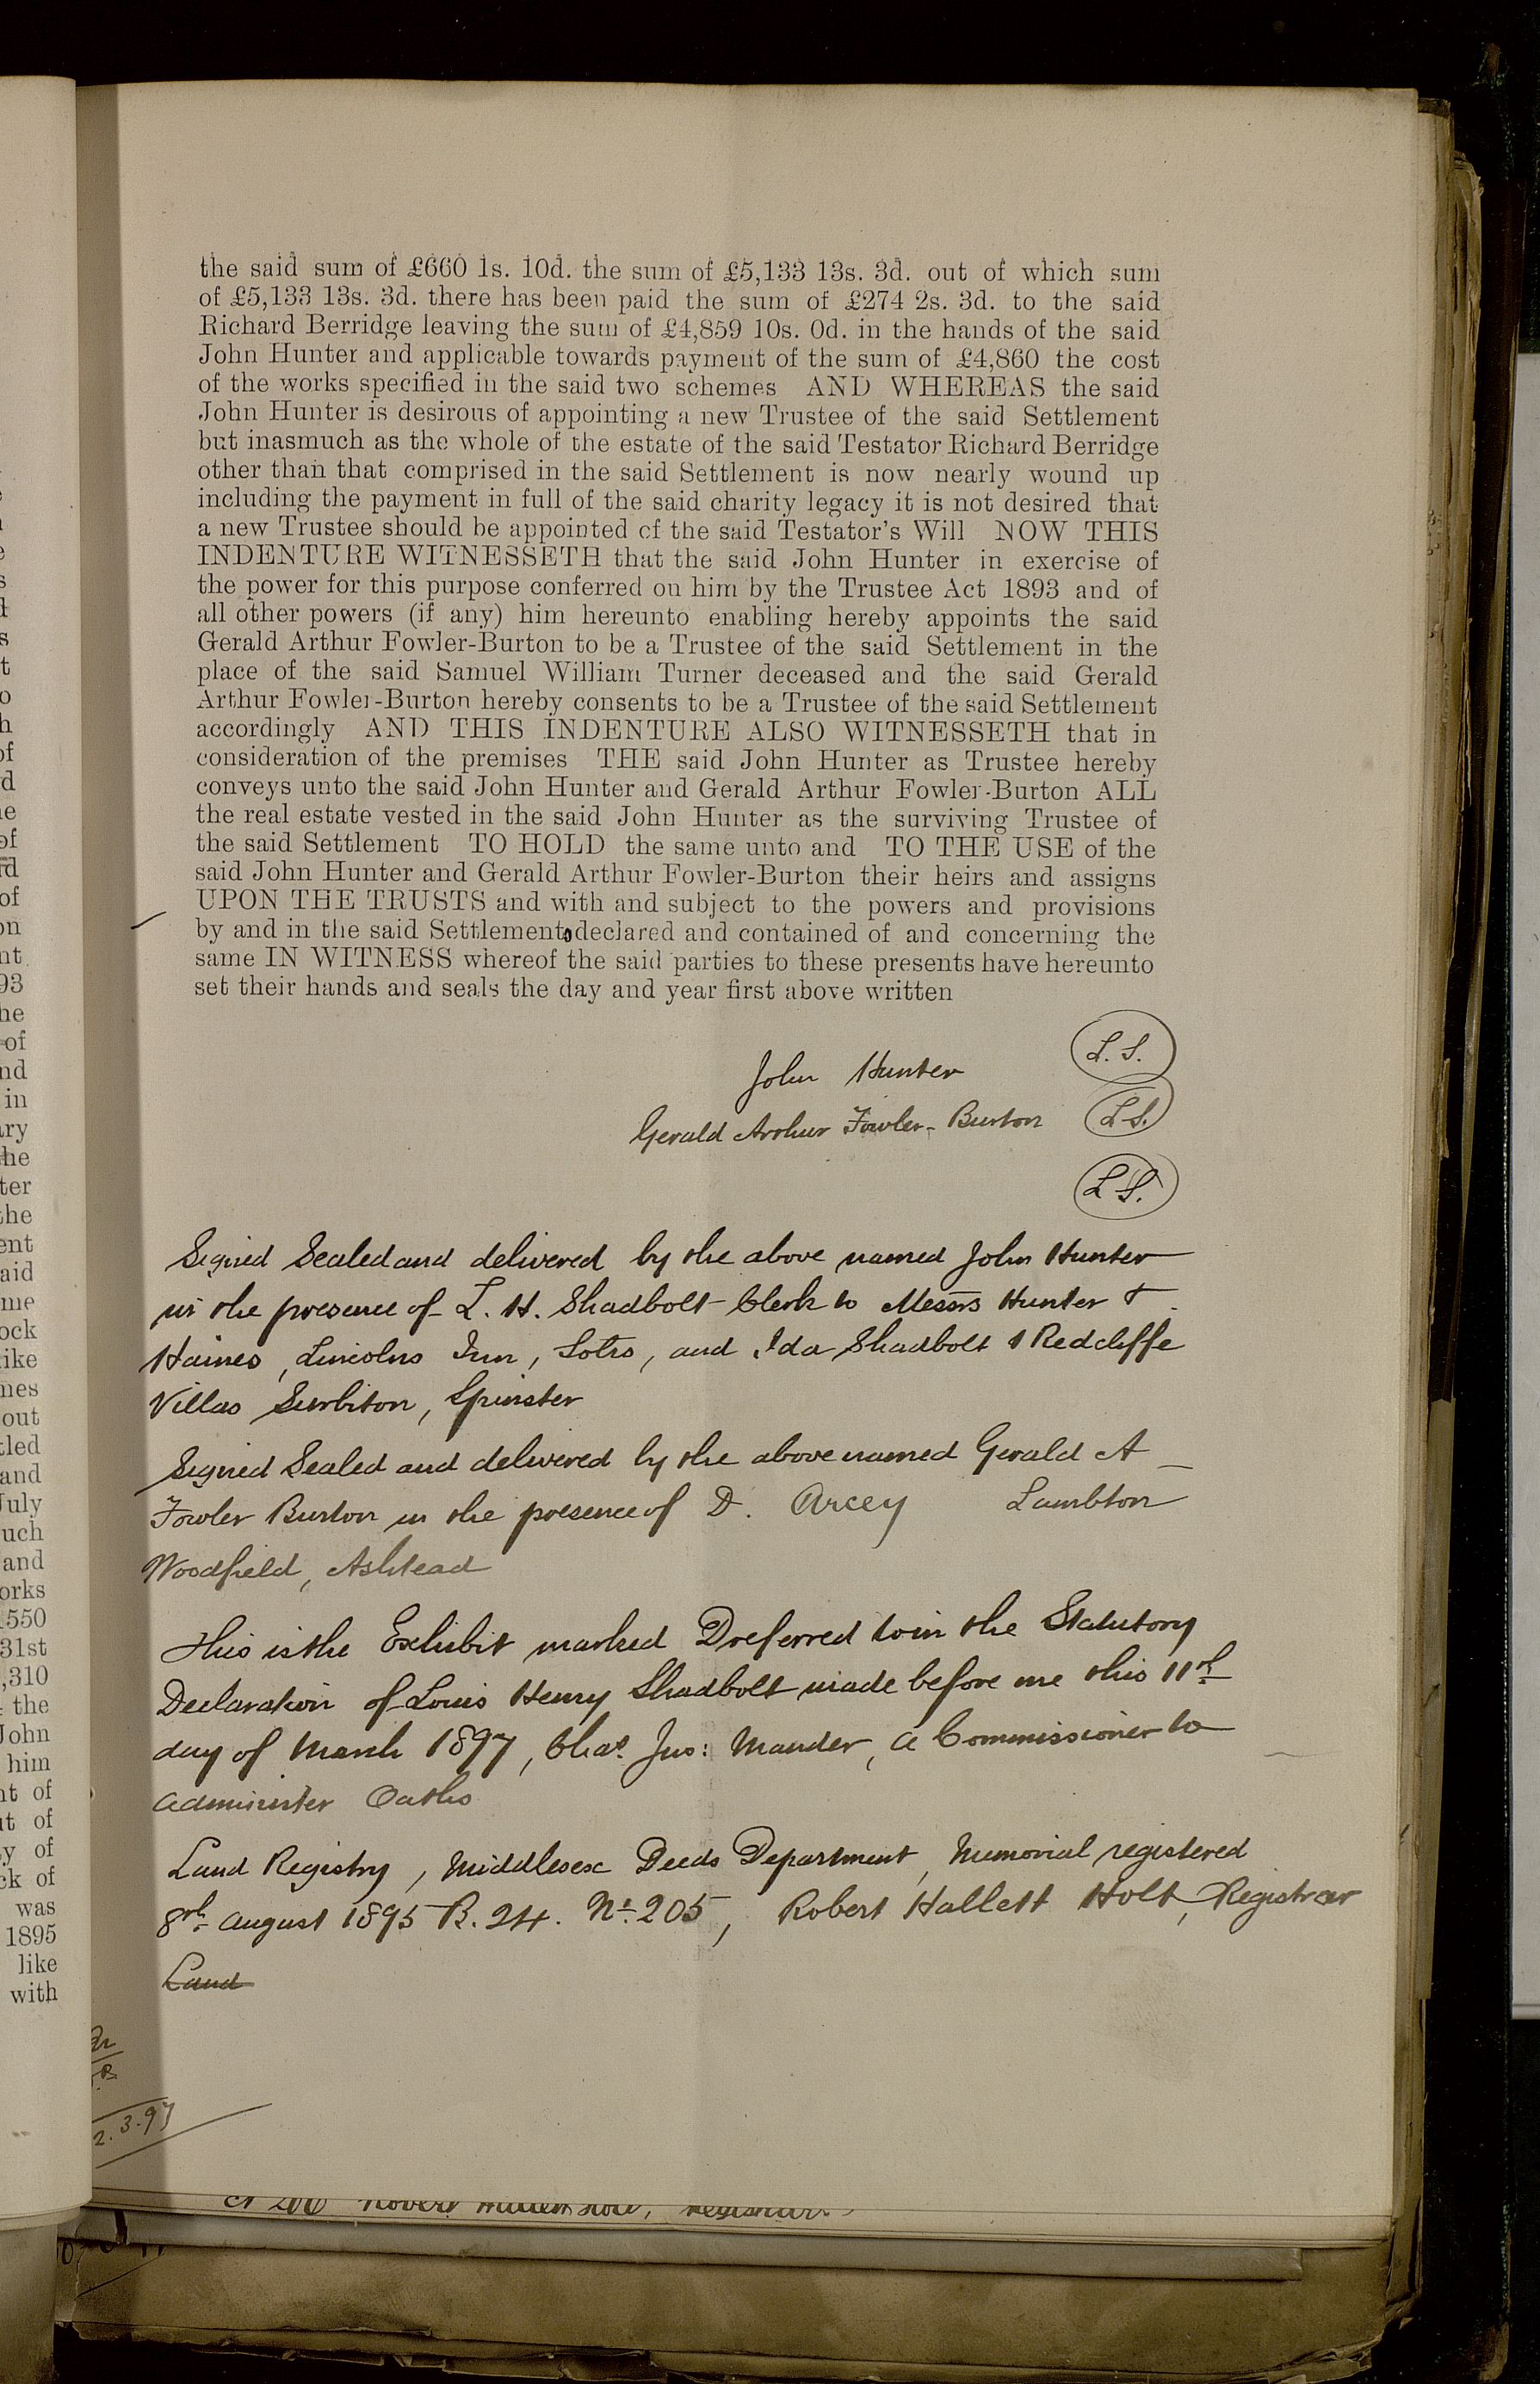 the said sum of £660 1s. 10d. the sum of £5,133 13s. 3d. out of which sum
of £5,133 13s. 3d. there has been paid the sum of £274 2s. 3d. to the said
Richard Berridge leaving the sum of £4,859 10s. 0d. in the hands of the said
John Hunter and applicable towards payment of the sum of £4,860 the cost
of the works specified in the said two schemes AND WHEREAS the said
John Hunter is desirous of appointing a new Trustee of the said Settlement
but inasmuch as the whole of the estate of the said Testator Richard Berridge
other than that comprised in the said Settlement is now nearly wound up
including the payment in full of the said charity legacy it is not desired that
a new Trustee should be appointed of the said Testator's Will NOW THIS
INDENTURE WITNESSETH that the said John Hunter in exercise of
the power for this purpose conferred on him by the Trustee Act 1893 and of
all other powers (if any) him hereunto enabling hereby appoints the said
Gerald Arthur Fowler-Burton to be a Trustee of the said Settlement in the
place of the said Samuel William Turner deceased and the said Gerald
Arthur Fowler-Burton hereby consents to be a Trustee of the said Settlement
accordingly AND THIS INDENTURE ALSO WITNESSETH that in
consideration of the premises THE said John Hunter as Trustee hereby
conveys unto the said John Hunter and Gerald Arthur Fowler-Burton ALL
the real estate vested in the said John Hunter as the surviving Trustee of
the said Settlement TO HOLD the same unto and TO THE USE of the
said John Hunter and Gerald Arthur Fowler-Burton their heirs and assigns
UPON THE TRUSTS and with and subject to the powers and provisions
by and in the said Settlements declared and contained of and concerning the
same IN WITNESS whereof the said parties to these presents have hereunto
set their hands and seals the day and year first above written
John Hunter L.S.
Gerald Arthur Fowler-Burton L.S.
L.S.
Signed Sealed and delivered by the above named John Hunter
in the presence of L. H. Shadbolt Clerk to Messrs Hunter &
Haines, Lincolns Inn, Solrs, and Ida Shadbolt 1 Redcliffe
Villas Surbiton, Spinster
Signed Sealed and delivered by the above named Gerald A
Fowler Burton in the presence of D. Arcey Lambton
Woodfield, Ashtead
This is the Exhibit marked D referred to in the Statutory
Declaration of Louis Henry Shadbolt made before me this 11th
day of March 1897, Chas. Jno: Mander, a Commissioner to
administer Oaths
Land Registry, Middlesex Deeds Department, Memorial registered
8th August 1895 B. 24. No. 205, Robert Hallett Holt, Registrar
Land
2.3.97